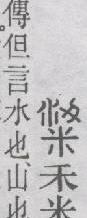 米禾米
傳但言水也、山也